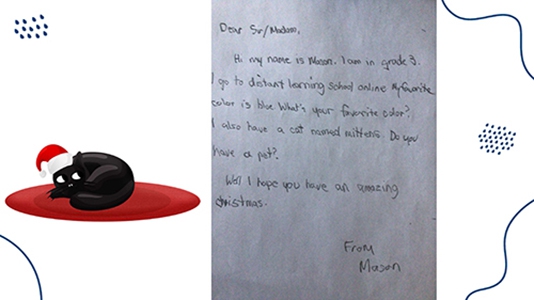 Dear Sir/Madam,
Hi my name is Mason. I am in grade 3.
I go to distant learning school online My favorite
color is blue What's your favorite color?
I also have a cat named mittens. Do you
have a pet?
Well I hope you have an amazing
christmas.
From
Mason